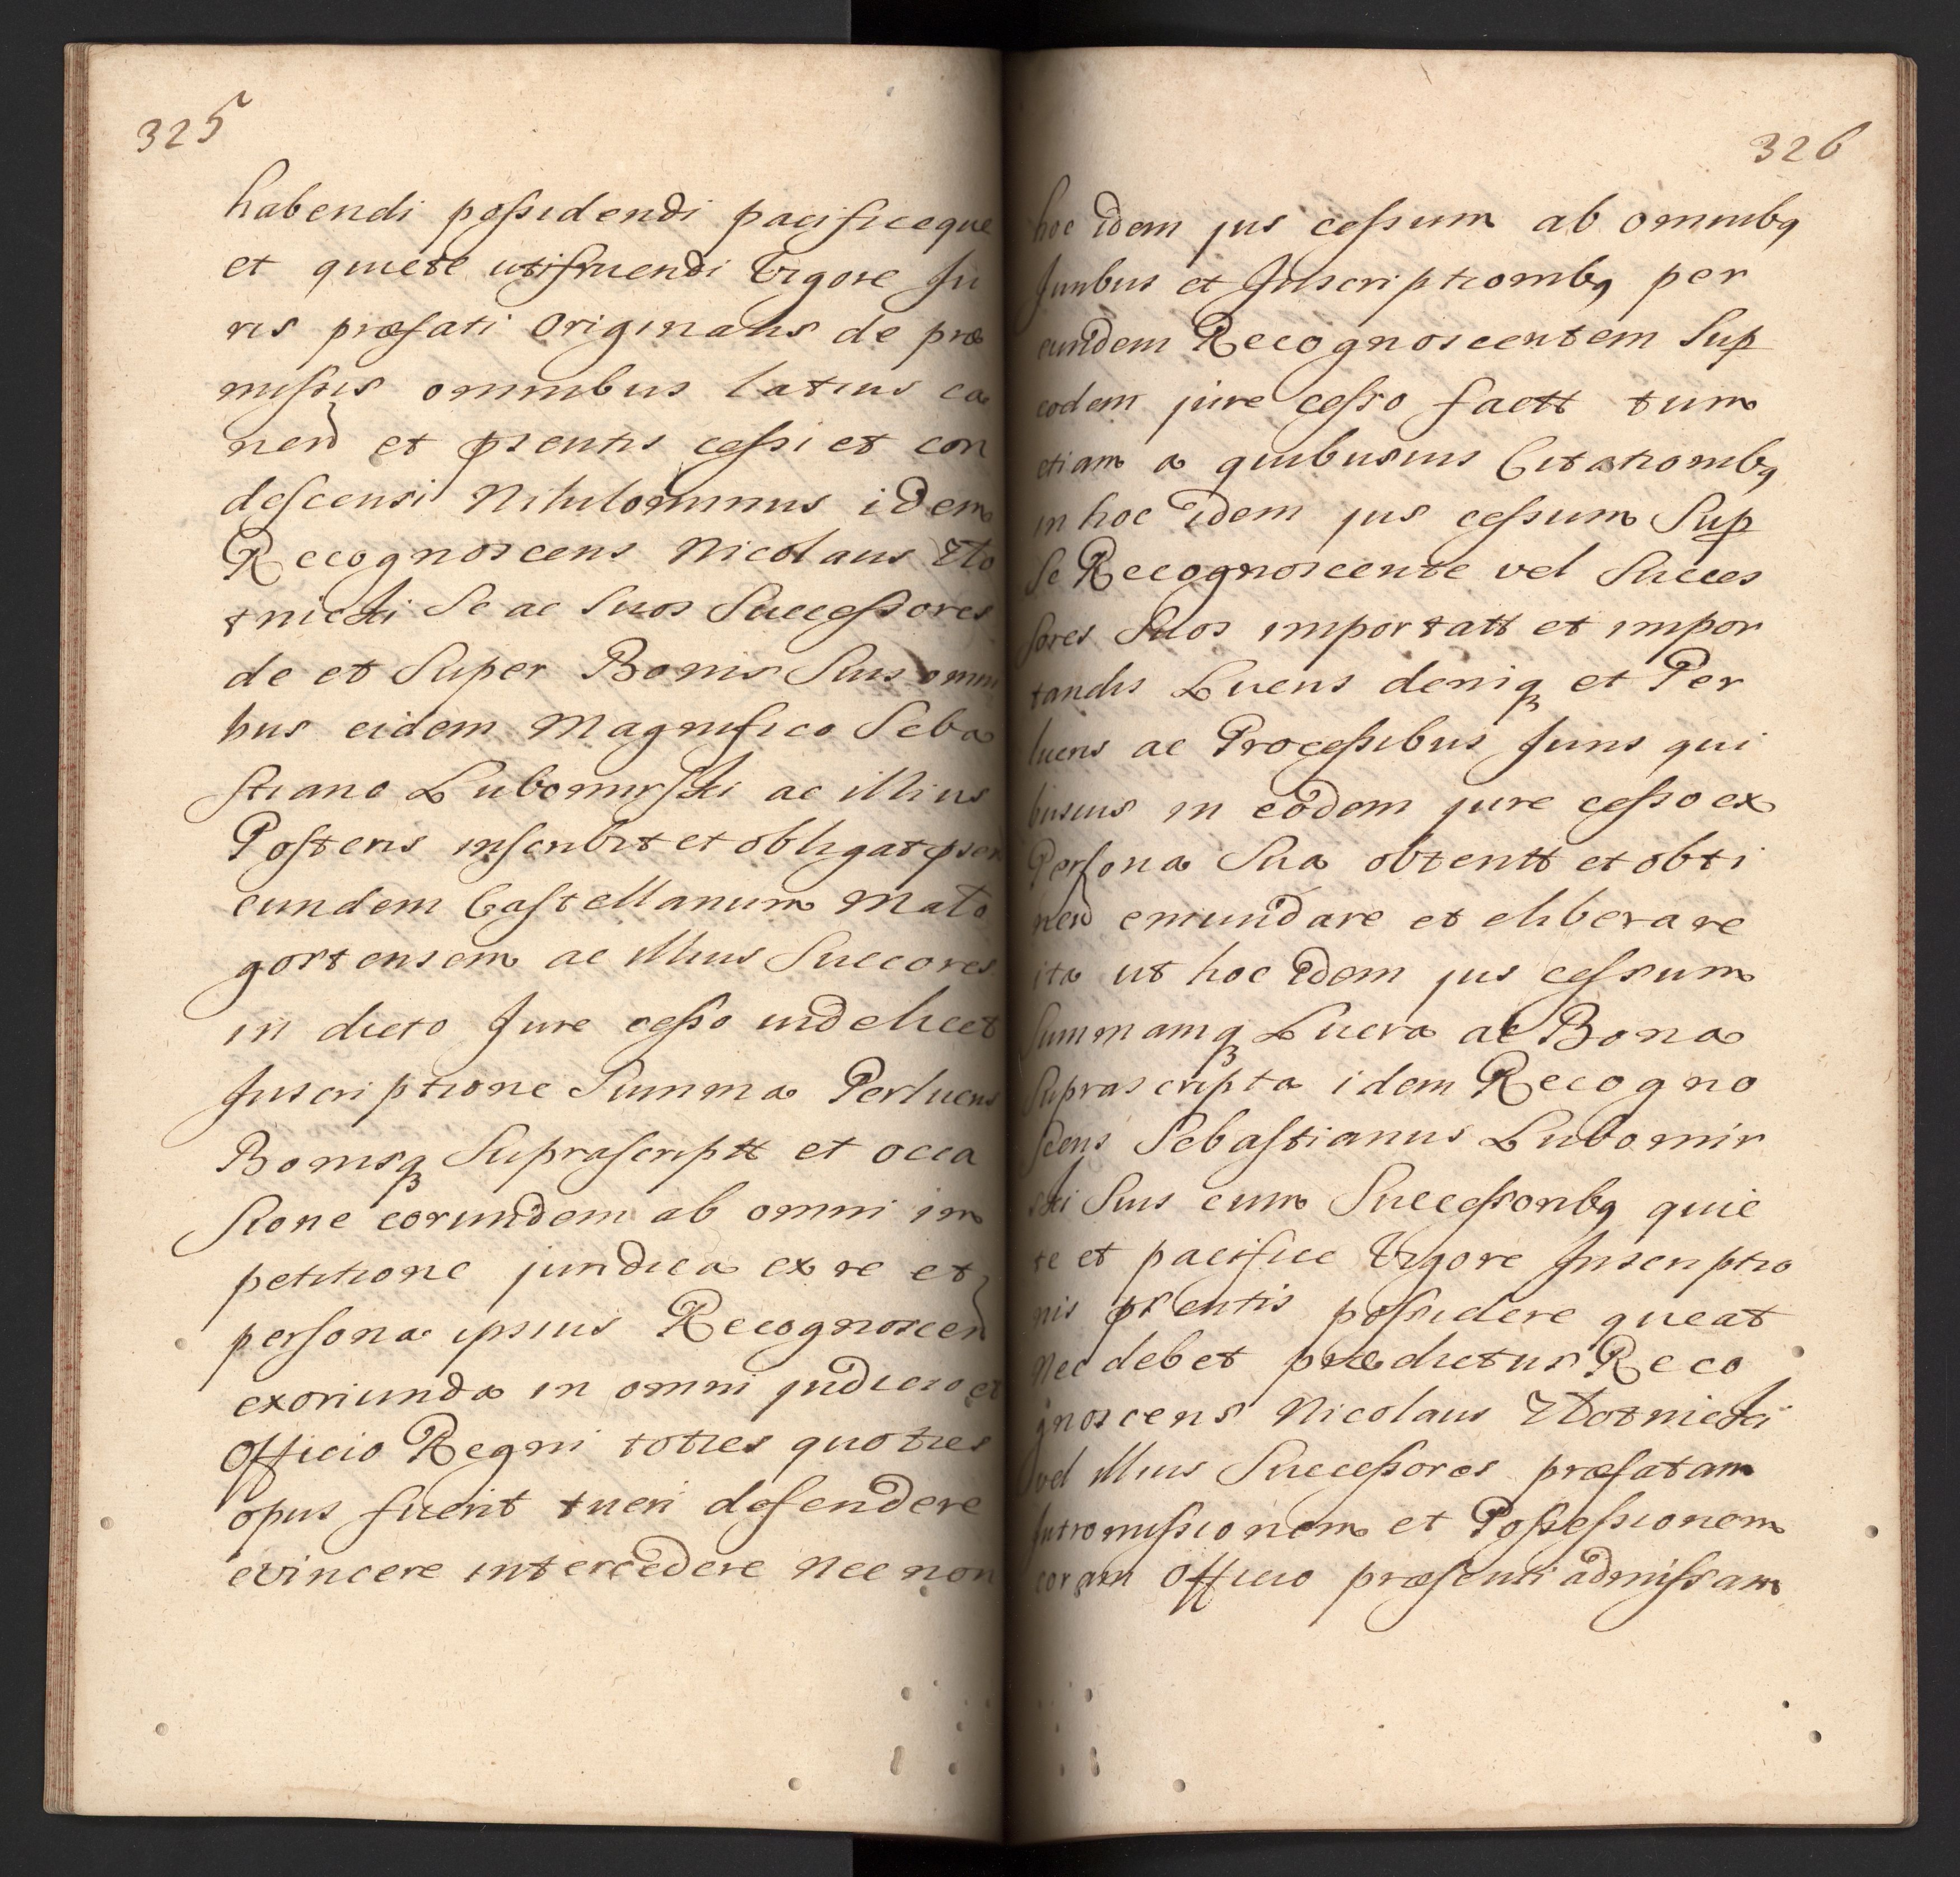 325
habendi possidendi pacificeque
et quiete utifruendi Vigore Ju
ris præfati Originalis de præ
missis omnibus latius ca
nen et pñsentis cessi et con
descensi Nihilominus idem
Recognoscens Nicolaus Zło
tnicki Se ac Suos Successores
de et Super Bonis Suis omni
bus eidem Magnifico Seba
stiano Lubomirski ac illius
Posteris inscribit et obligat
eundem Castellanum Mało
gostensem ac illius Succores
in dicto Jure cesso videlicet
Inscriptione Summa Perlucris
Bonisq Suprascriptt et occa
sione eorundem ab omni im
petitione juridica ex re et
persona ipsius Recognoscen
exoriunda in omni judicio et
Officio Regni toties quoties
opus fuerit tueri defendere
evincere intercedere nec non
326
hoc idem jus cessum ab omnibq
Juribus et Inscriptionibq per
eundem Recognoscentem Sup
eodem jure cesso factt tum
etiam a quibusvis Citationibq
in hoc idem jus cessum Sup
Se Recognoscente vel Succes
sores Suos importatt et impor
tandis Lucris deniq et Per
lucris ac Processibus Juris qui
busvis in eodem jure cesso ex
Persona Sua obtentt et obti
nen emundare et eliberare
ita ut hoc idem jus cessum
Summamq Lucra ac Bona
Suprascripta idem Recogno
scens Sebastianus Lubomir
ski Suis cum Successoribq quie
te et pacifice Vigore Inscriptio
nis pñsentis possidere queat
Nec debet prædictus Reco
gnoscens Nicolaus Złotnicki
vel illius Successores præfatam
Intromissionem et Possessionem
coram Officio præsenti admissam